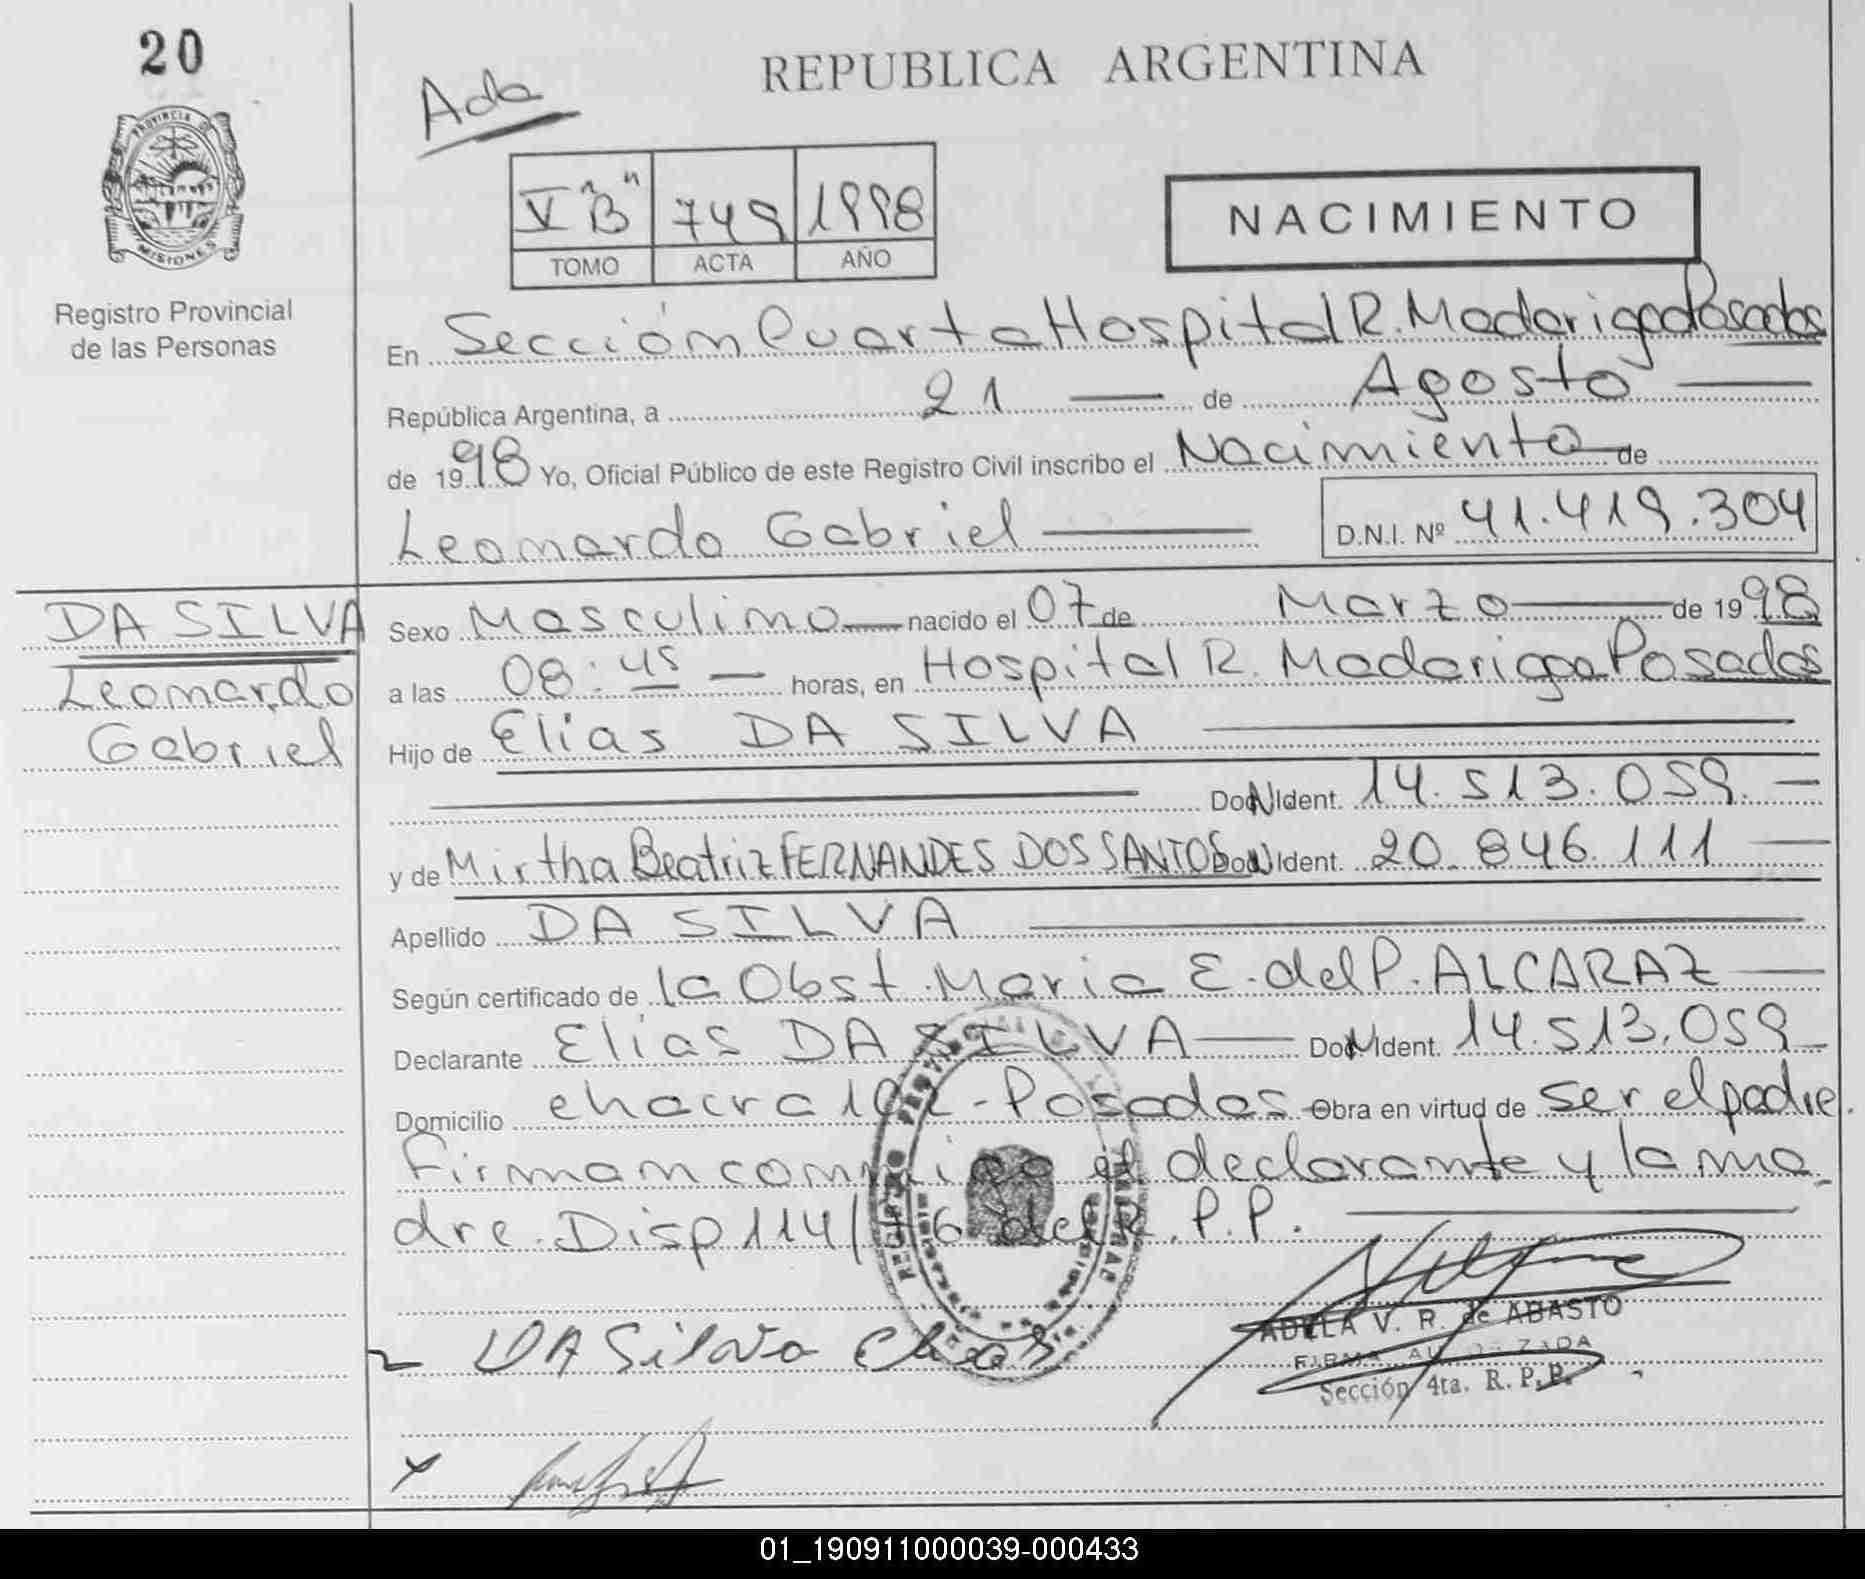 20
Ada
REPUBLICA ARGENTINA
PROVINCIA D
MISIONES
V "B" 749 1998
TOMO ACTA AÑO
NACIMIENTO
Registro Provincial
de las Personas
En Sección Cuarta Hospital R. Madariaga Posadas
República Argentina, a 21 de Agosto
de 1998 Yo, Oficial Público de este Registro Civil inscribo el Nacimiento de
Leonardo Gabriel D.N.I. Nº 41.419.304
DA SILVA
Leonardo
Gabriel
Sexo Masculino nacido el 07 de Marzo de 1998
a las 08:45 horas, en Hospital R. Madariaga Posadas
Hijo de Elias DA SILVA
Ident. 14.513.059.
y de Mirtha Beatriz FERNANDES DOS SANTOS Ident. 20.846.111
Apellido DA SILVA
Según certificado de la Obst. Maria E. del P. ALCARAZ
Declarante Elias DA SILVA Ident. 14.513.059
Domicilio chacra Posadas Obra en virtud de ser el padre.
Firman conmigo el declarante y la ma
dre. Disp 114/76 del R.P.P.
DA Silva Elias
ADELA V. R. de ABASTO
FIRMA AUTORIZADA
Sección 4ta. R. P. P.
01_190911000039-000433